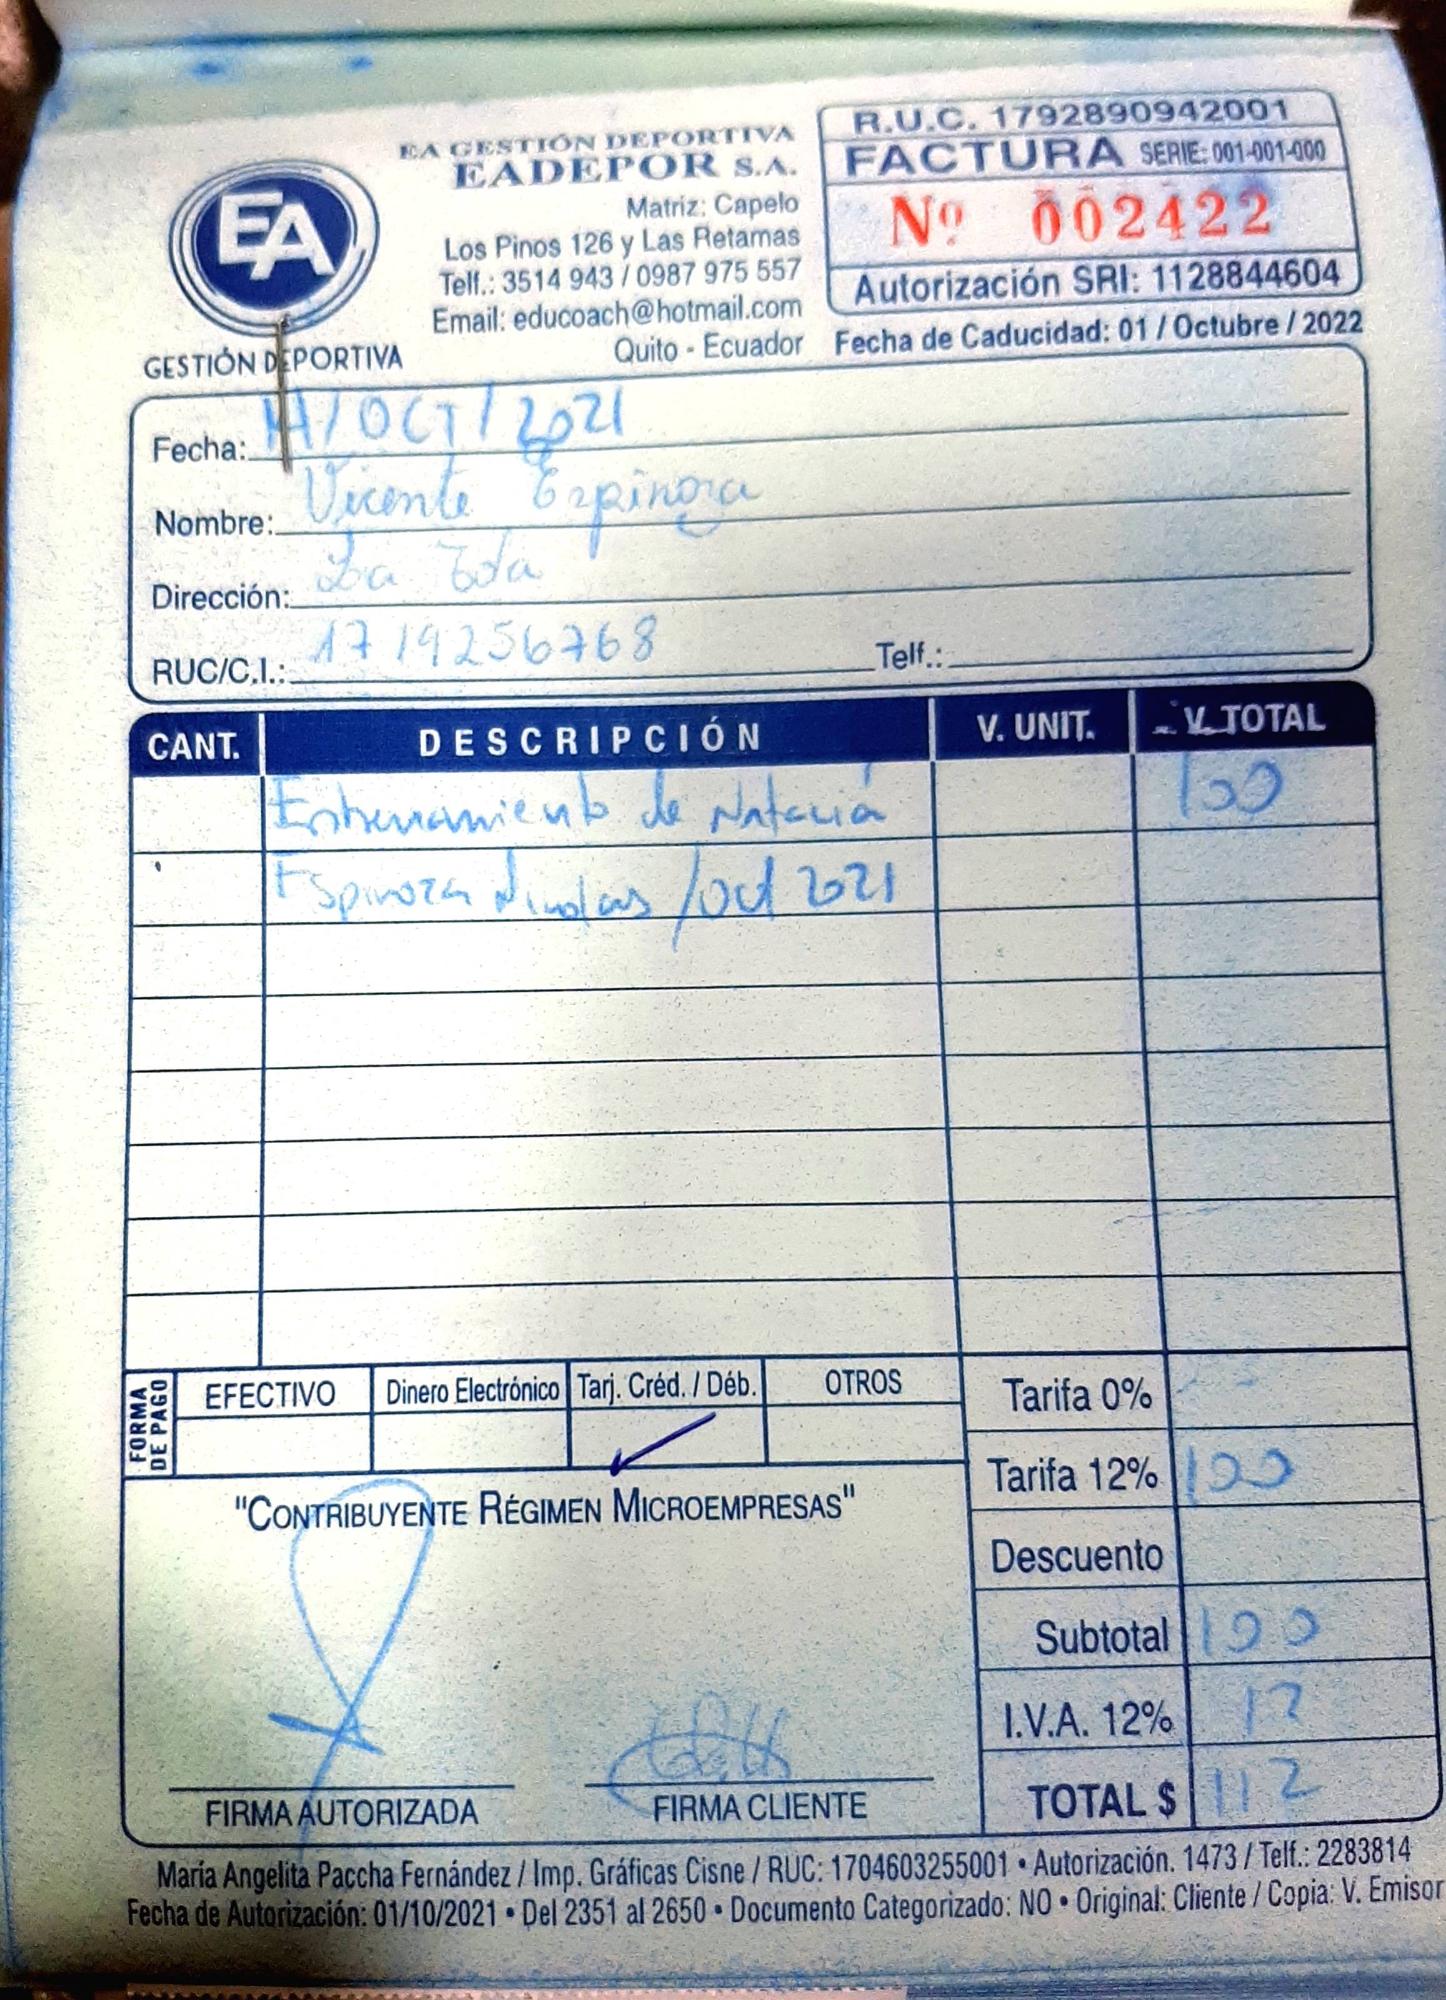 EA GESTIÓN DEPORTIVA
EADEPOR S.A.
Matriz: Capelo
Los Pinos 126 y Las Retamas
Telf.: 3514 943 / 0987 975 557
Email: educoach@hotmail.com
Quito - Ecuador
EA
GESTIÓN DEPORTIVA
R.U.C. 1792890942001
FACTURA SERIE: 001-001-000
Nº 002422
Autorización SRI: 1128844604
Fecha de Caducidad: 01 / Octubre / 2022
Fecha: 14/OCT/2021
Nombre: Vicente Espinoza
Dirección: La Tola
RUC/C.I.: 1719256768 Telf.:
CANT. DESCRIPCIÓN V. UNIT. V. TOTAL
Entrenamiento de Natación 100
Espinoza Nicolas /Oct 2021
FORMA DE PAGO
EFECTIVO Dinero Electrónico Tarj. Créd. / Déb. OTROS
Tarifa 0%
Tarifa 12% 100
"CONTRIBUYENTE RÉGIMEN MICROEMPRESAS"
Descuento
Subtotal 100
I.V.A. 12% 12
TOTAL $ 112
FIRMA AUTORIZADA FIRMA CLIENTE
María Angelita Paccha Fernández / Imp. Gráficas Cisne / RUC: 1704603255001 • Autorización. 1473 / Telf.: 2283814
Fecha de Autorización: 01/10/2021 • Del 2351 al 2650 • Documento Categorizado: NO • Original: Cliente / Copia: V. Emisor